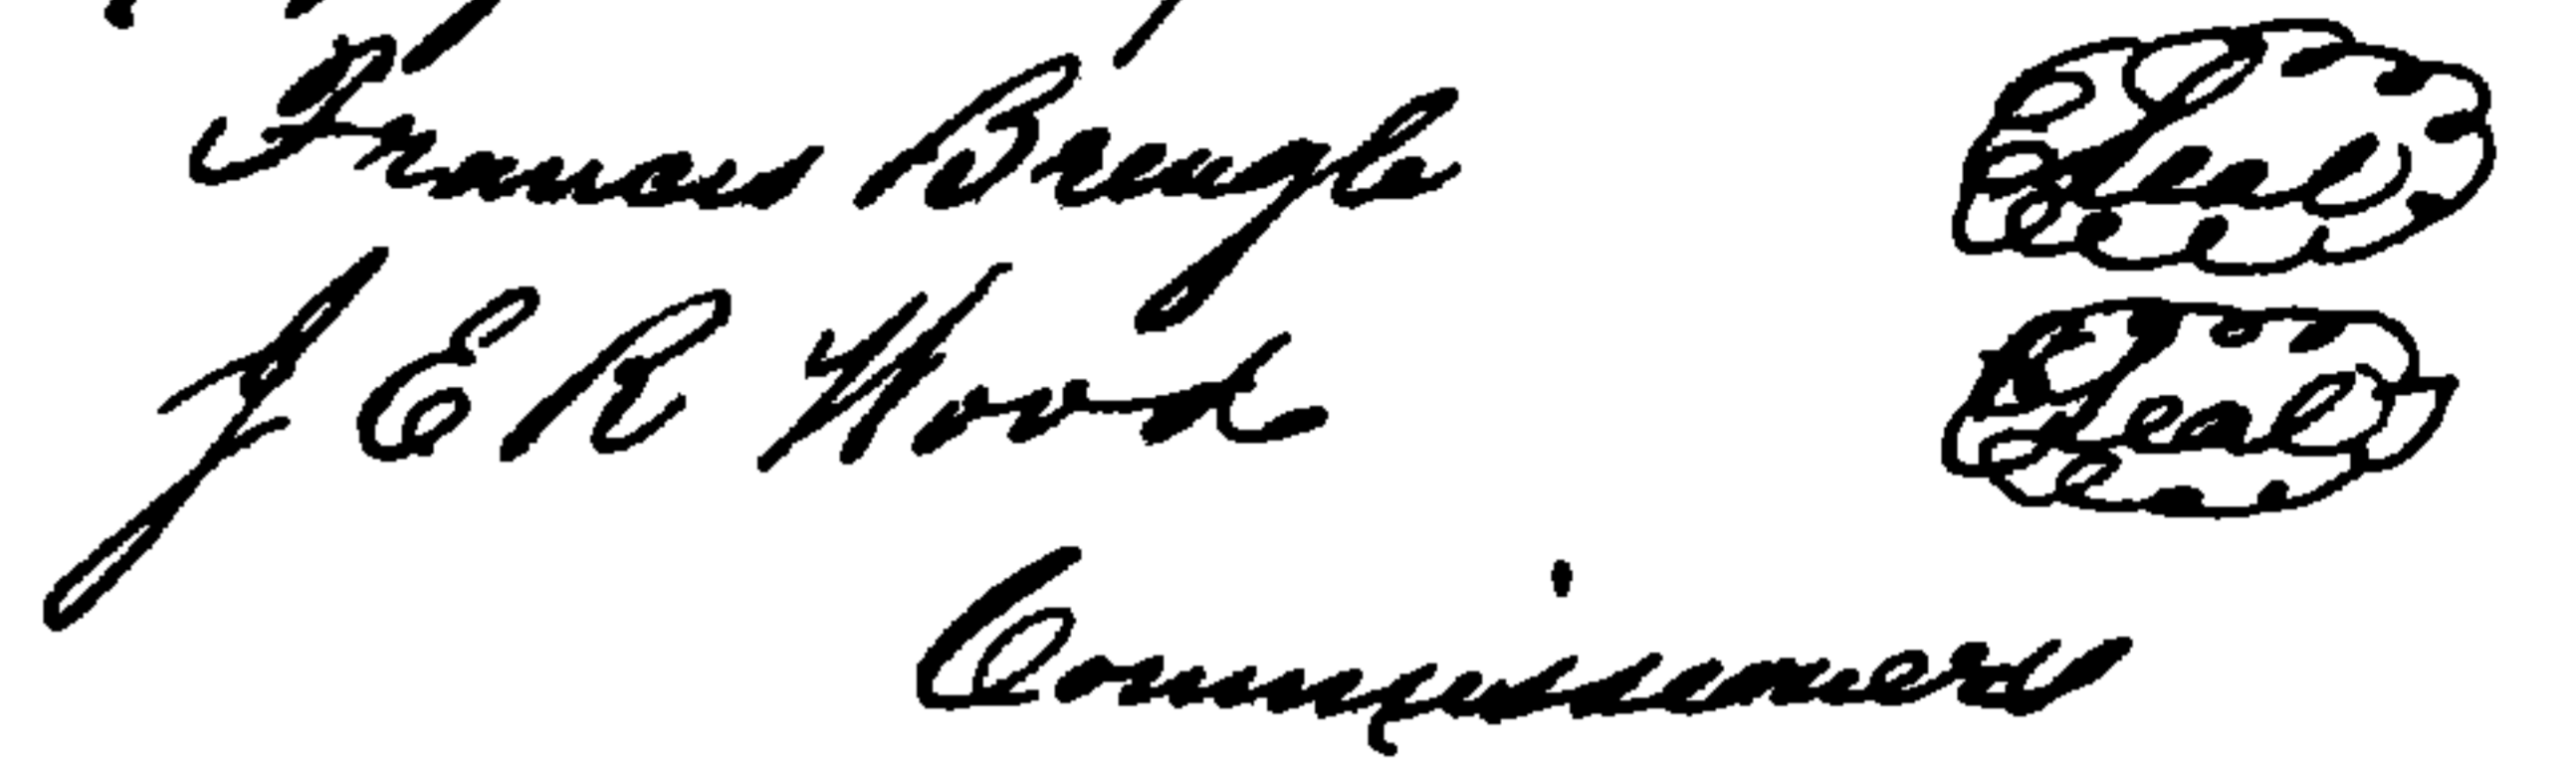 Francis Brengle Seal
J E R Wood Seal
Commissioners